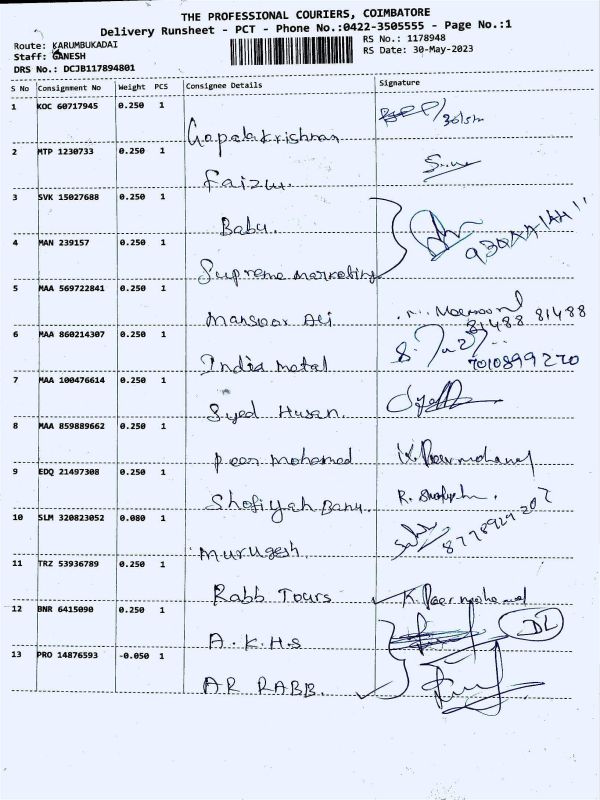 THE PROFESSIONAL COURIERS, COIMBATORE
Delivery Runsheet - PCT - Phone No.:0422-3505555 - Page No.:1
Route: KARUMBUKADAI
RS No.: 1178948
Staff: GANESH
RS Date: 30-May-2023
DRS No.: DCJB117894801
S No Consignment No Weight PCS Consignee Details Signature
1 KOC 60717945 0.250 1
Gopalakrishnan
2 MTP 1230733 0.250 1
Faizu.
3 SVK 15027688 0.250 1
Babu.
4 MAN 239157 0.250 1
Supreme marketing
5 MAA 569722841 0.250 1
Mansoor Ali
81488 81488
6 MAA 860214307 0.250 1
India metal 7010899270
7 MAA 100476614 0.250 1
Syed Husan.
8 MAA 859889662 0.250 1
Peer mohamed K. Peermohamed
9 EDQ 21497308 0.250 1
Shofiyah Banu.
10 SLM 320823052 0.080 1
Murugesh.
11 TRZ 53936789 0.250 1
Rabb Tours K. Peermohamed
12 BNR 6415090 0.250 1
A.K.H.S DL
13 PRO 14876593 -0.050 1
AR RABB.